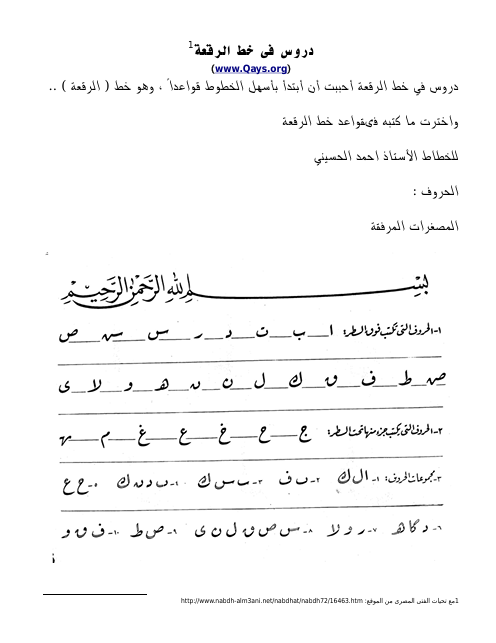 دروس في خط الرقعة1
(www.Qays.org)
دروس في خط الرقعة أحببت أن أبتدأ بأسهل الخطوط قواعداً ، وهو خط ( الرقعة ) ..
واخترت ما كتبه فيقواعد خط الرقعة
للخطاط الأستاذ احمد الحسيني
الحروف :
المصغرات المرفقة
بسم الله الرحمن الرحيم
١- الحروف التي تكتب فوق السطر: ا ب ت د ر س سه ص
ص ط ف ق ك ل ن ن ه و لا ى
٢- الحروف التي يكتب جزء منها تحت السطر: ج ح خ ع غ م
٣- مجموعات الحروف: ١- ا ل ك ٢- ب ف ٣- ب س ك ٤- ب د ن ك ٥- ح ع
٦- د ك ا ه ٧- ر و لا ٨- س ص ق ل ن ى ٩- ص ط ١٠- ف ق و
1مع تحيات الفتى المصرى من الموقع: http://www.nabdh-alm3ani.net/nabdhat/nabdh72/16463.htm